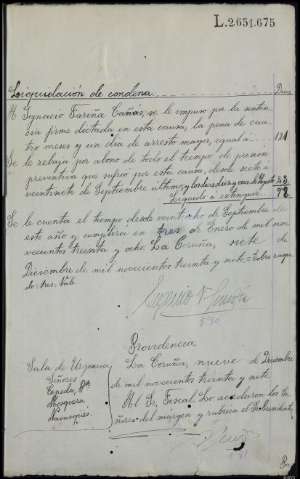 L.2.651.675
Liquidación de condena
Dias
A Ignacio Fariña Cañas, se le impuso por la senten
cia firme dictada en esta causa, la pena de cua
tro meses y un dia de arresto mayor, igual a
121
Se le rebaja por abono de todo el tiempo de prision
preventiva que sufrió por esta causa, desde
veintiocho de Septiembre ultimo
Quedando a extinguir
Se le cuenta el tiempo desde veintiocho de Septiembre de
este año y cumplirá en tres de Enero de mil nove
cientos treinta y ocho. La Coruña, siete de
Diciembre de mil novecientos treinta y siete =
Providencia
Sala de Urgencia
La Coruña, nueve de Diciembre
Señores
de mil novecientos treinta y siete.
Cepeda
Al Sr. Fiscal. Lo acordaron los Se
Mosquera
ñores del margen y rubrica el Presidente